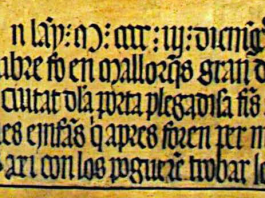 n lāy : M : cccc : iij : diemēg
ubre fo en Mallorq̄s gran d
ciutat dla porta plegadisa fis
es e infās q̄ apres foren per m
axi con los poguerē trobar lo